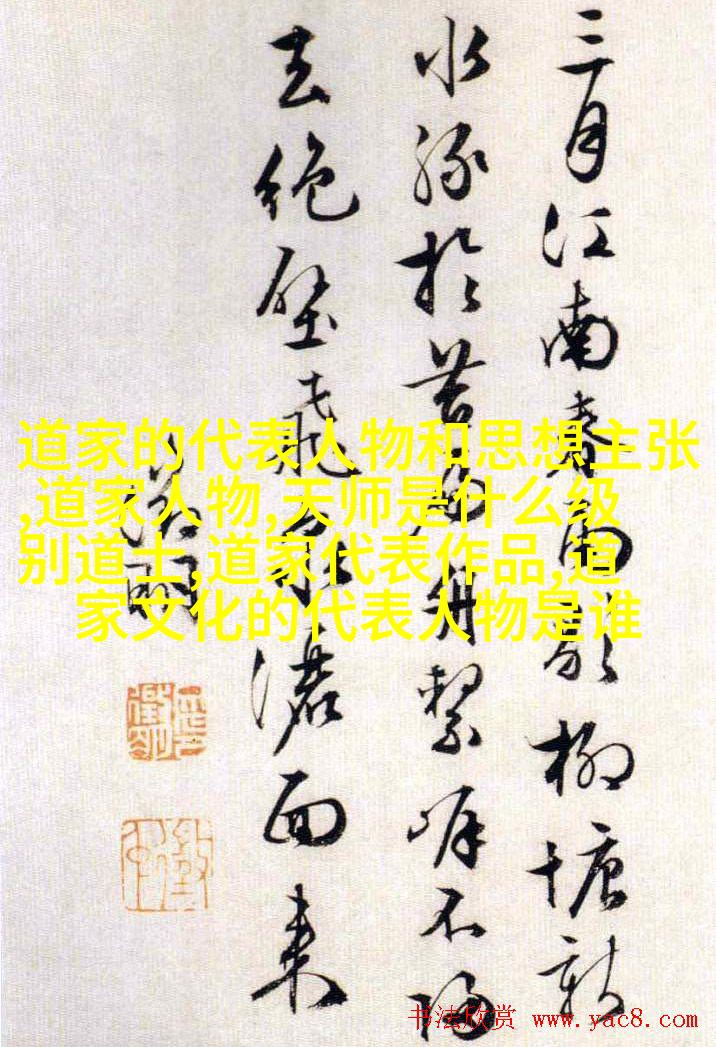 三月江南春雨歇柳塘新
水綠於苔扁舟繫岸不歸
去絕壁飛泉面來
徵明
道家的代表人物和思想主张
,道家人物,天师是什么级
别道士,道家代表作品,道
家文化的代表人物是谁
书法欣赏 www.yac8.com